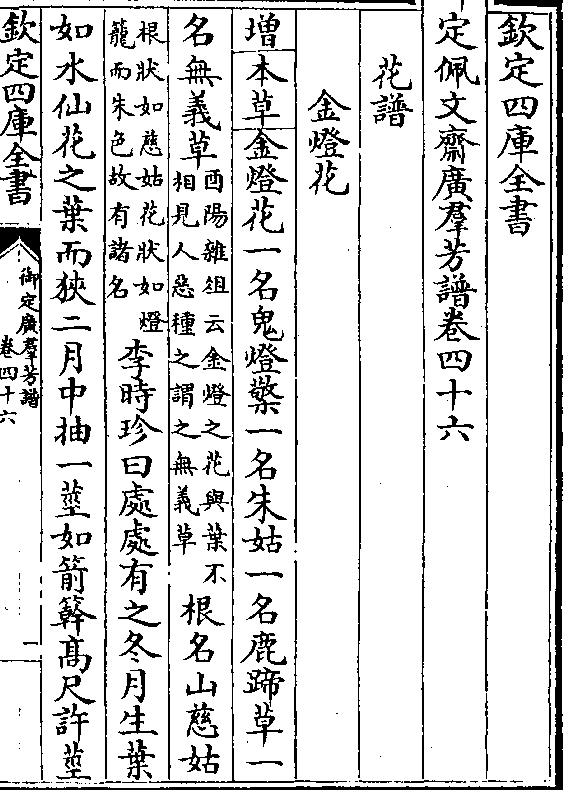 欽定四庫全書
定佩文齋廣羣芳譜卷四十六
花譜
金燈花
增本草金燈花一名鬼燈檠一名朱姑一名鹿蹄草一
名無義草酉陽雜俎云金燈之花與葉不
相見人惡種之謂之無義草根名山慈姑
根狀如慈姑花狀如燈
籠而朱色故有諸名李時珍曰處處有之冬月生葉
如水仙花之葉而狹二月中抽一莖如箭簳髙尺許莖
欽定四庫全書
御定廣羣芳譜
卷四十六
一